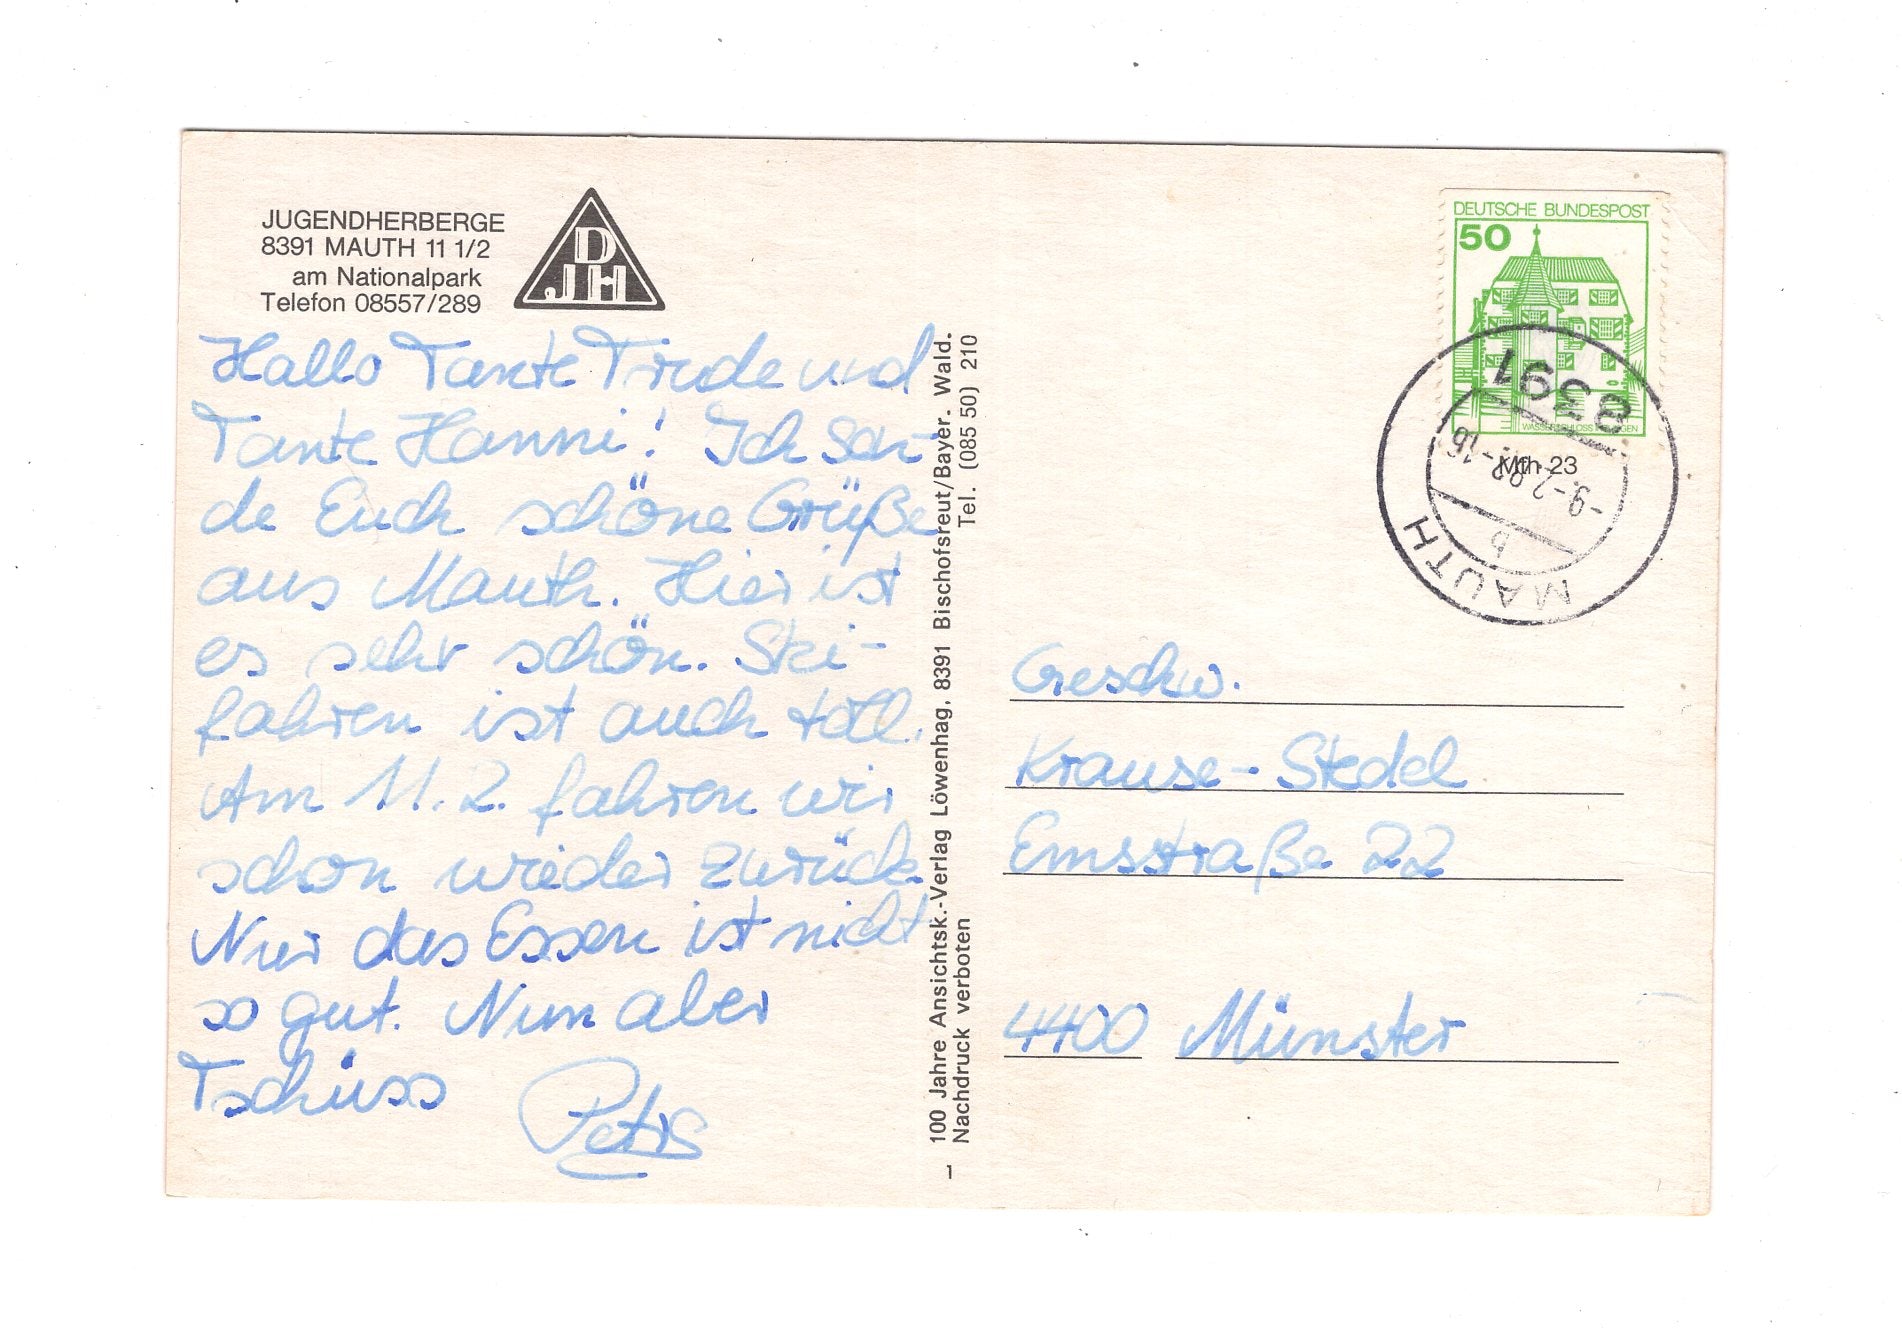 JUGENDHERBERGE
8391 MAUTH 11 1/2
am Nationalpark
Telefon 08557/289
D
JH
Hallo Tante Trude und
Tante Hanni! Ich sen-
de Euch schöne Grüße
aus Mauth. Hier ist
es sehr schön. Ski-
fahren ist auch toll.
Am 11.2. fahren wir
schon wieder zurück.
Nur das Essen ist nicht
so gut. Nun aber
Tschüss
100 Jahre Ansichtsk.-Verlag Löwenhag, 8391 Bischofsreut/Bayer. Wald.
Nachdruck verboten Tel. (085 50) 210
1
DEUTSCHE BUNDESPOST
50
WASSERSCHLOSS
8391
Mth 23
-9.-2.82.-16
b
MAUTH
Geschw.
Krause-Stedel
Emsstraße 22
4400 Münster